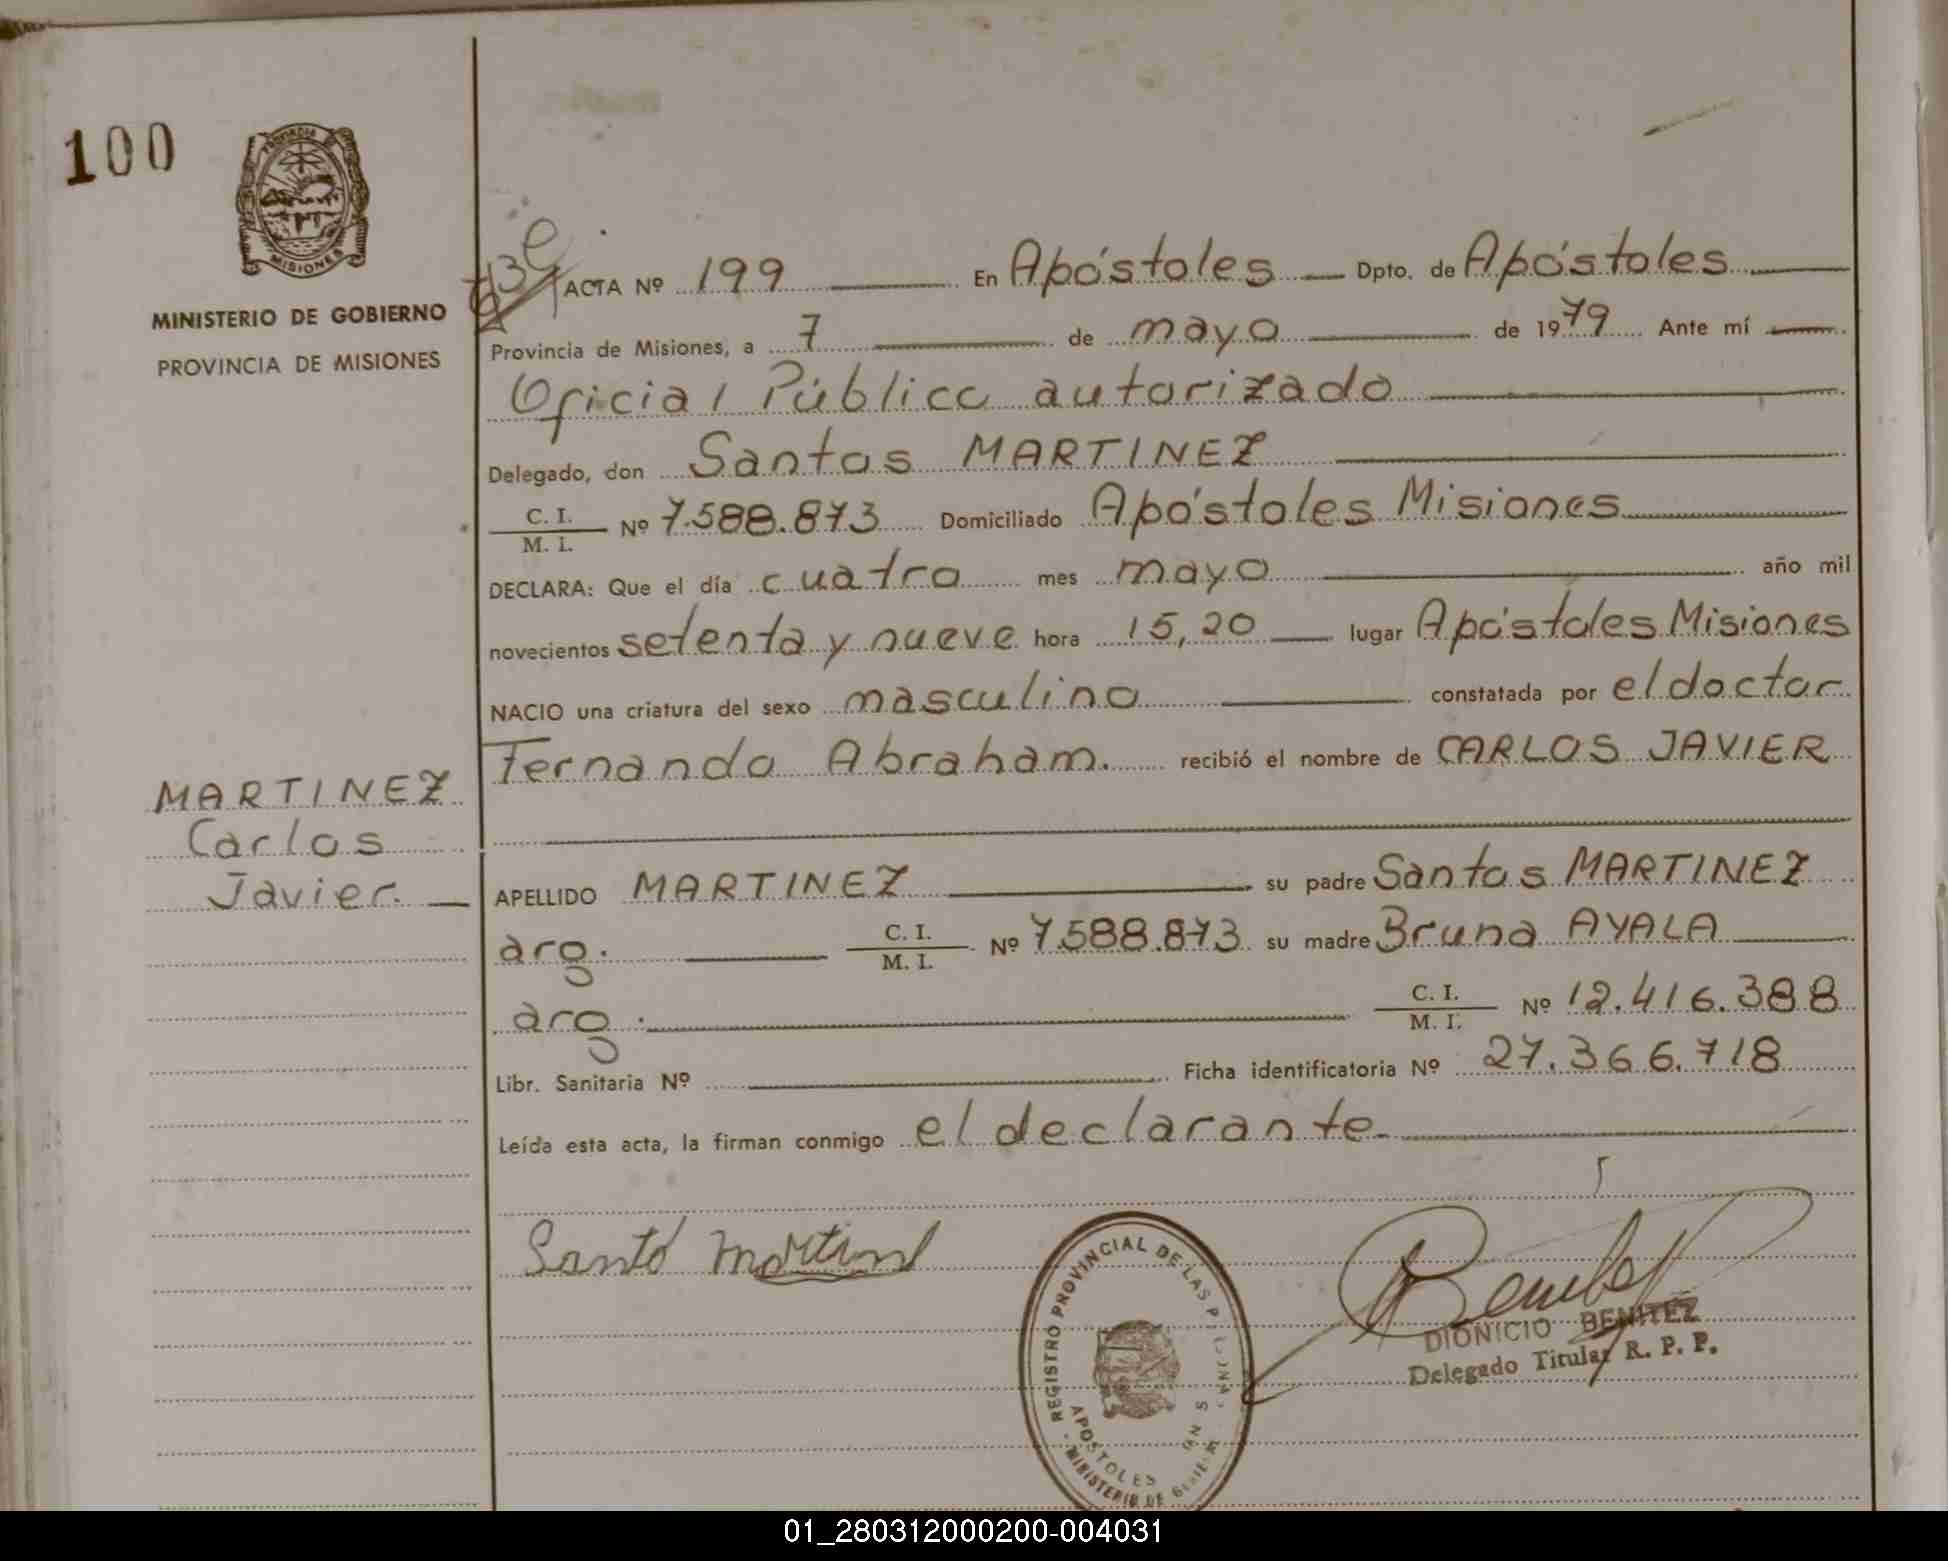 100
PROVINCIA
MISIONES
MINISTERIO DE GOBIERNO
PROVINCIA DE MISIONES
ACTA Nº 199 En Apóstoles Dpto. de Apóstoles
Provincia de Misiones, a 7 de mayo de 1979 Ante mí
Oficial Público autorizado
Delegado, don Santos MARTINEZ
C. I.
M. I. Nº 7.588.873 Domiciliado Apóstoles Misiones
DECLARA: Que el día cuatro mes mayo año mil
novecientos setenta y nueve hora 15,20 lugar Apóstoles Misiones
NACIO una criatura del sexo masculino constatada por el doctor
Fernando Abraham. recibió el nombre de CARLOS JAVIER
MARTINEZ
Carlos
Javier.
APELLIDO MARTINEZ su padre Santos MARTINEZ
arg. C. I.
M. I. Nº 7.588.873 su madre Bruna AYALA
arg. C. I.
M. I. Nº 12.416.388
Libr. Sanitaria Nº Ficha identificatoria Nº 27.366.718
Leída esta acta, la firman conmigo el declarante
Santo Martinez
REGISTRO PROVINCIAL DE LAS
APOSTOLES
MINISTERIO DE
DIONICIO BENITEZ
Delegado Titular R. P. P.
01_280312000200-004031